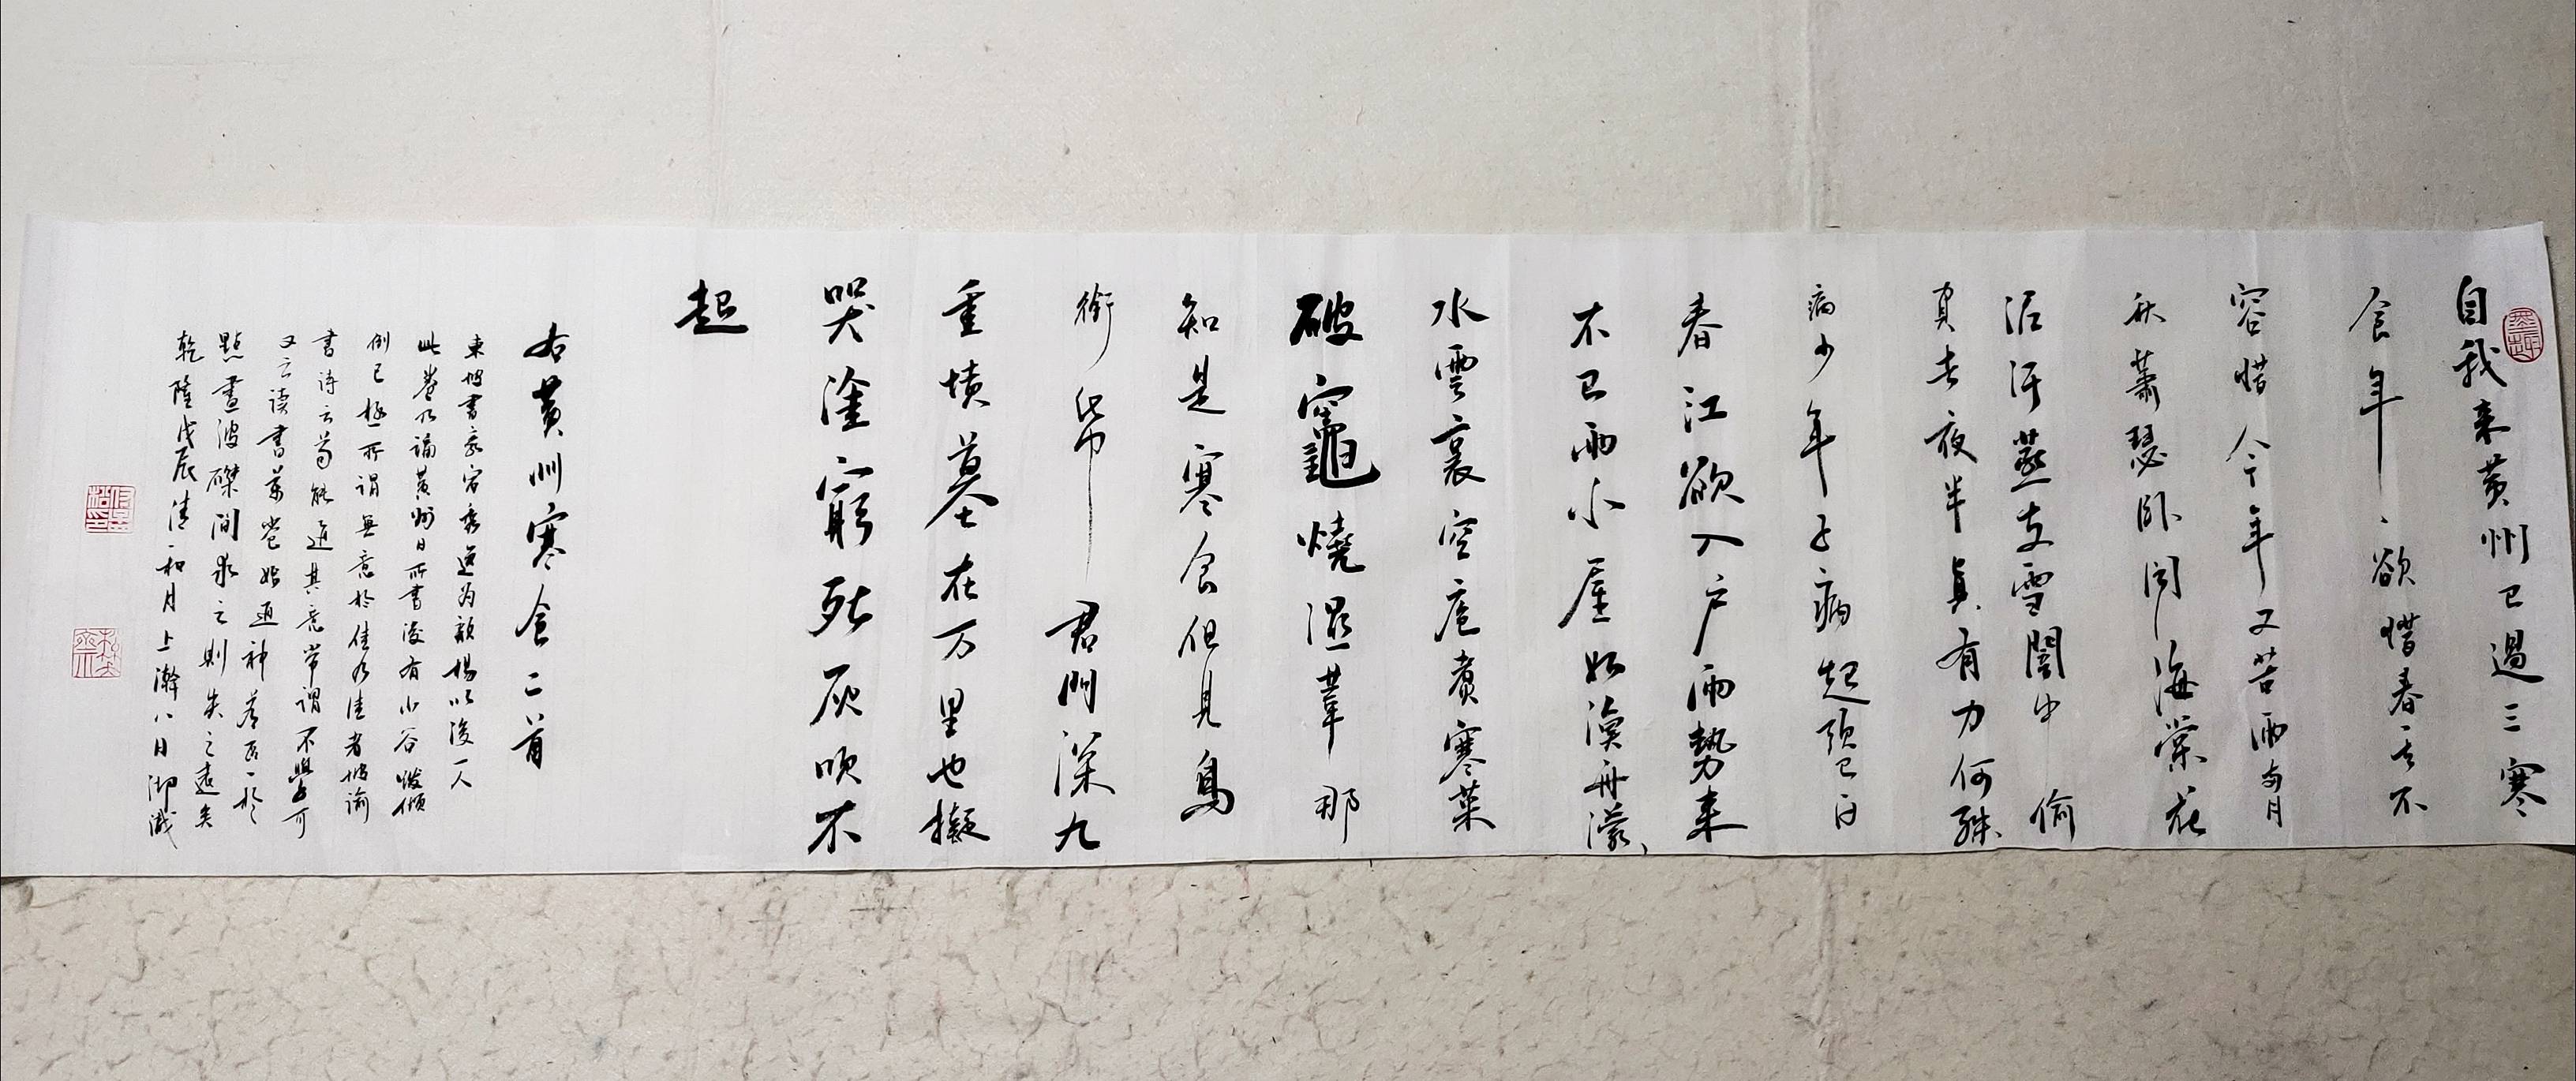 自我来黄州已過三寒
食年、欲惜春春去不
容惜今年又苦雨兩月
秋蕭瑟卧聞海棠花
泥汙燕支雪闇中偷
負去夜半真有力何殊
病少年子病起頭已白
春江欲入户雨勢来
不已雨小屋如漁舟濛、
水雲裏空庖煮寒菜
破竈燒濕葦那
知是寒食但見烏
銜帋君門深九
重墳墓在万里也擬
哭塗窮死灰吹不
起
右黄州寒食二首
東坡書豪宕秀逸为顏楊以後一人
此卷乃謫黄州日所書後有山谷跋傾
倒已極所謂無意於佳乃佳者坡論
書诗云苟能通其意常謂不學可
又云读書萬卷始通神若區區於
點畫波磔間求之則失之遠矣
乾隆戊辰清和月上澣八日御識